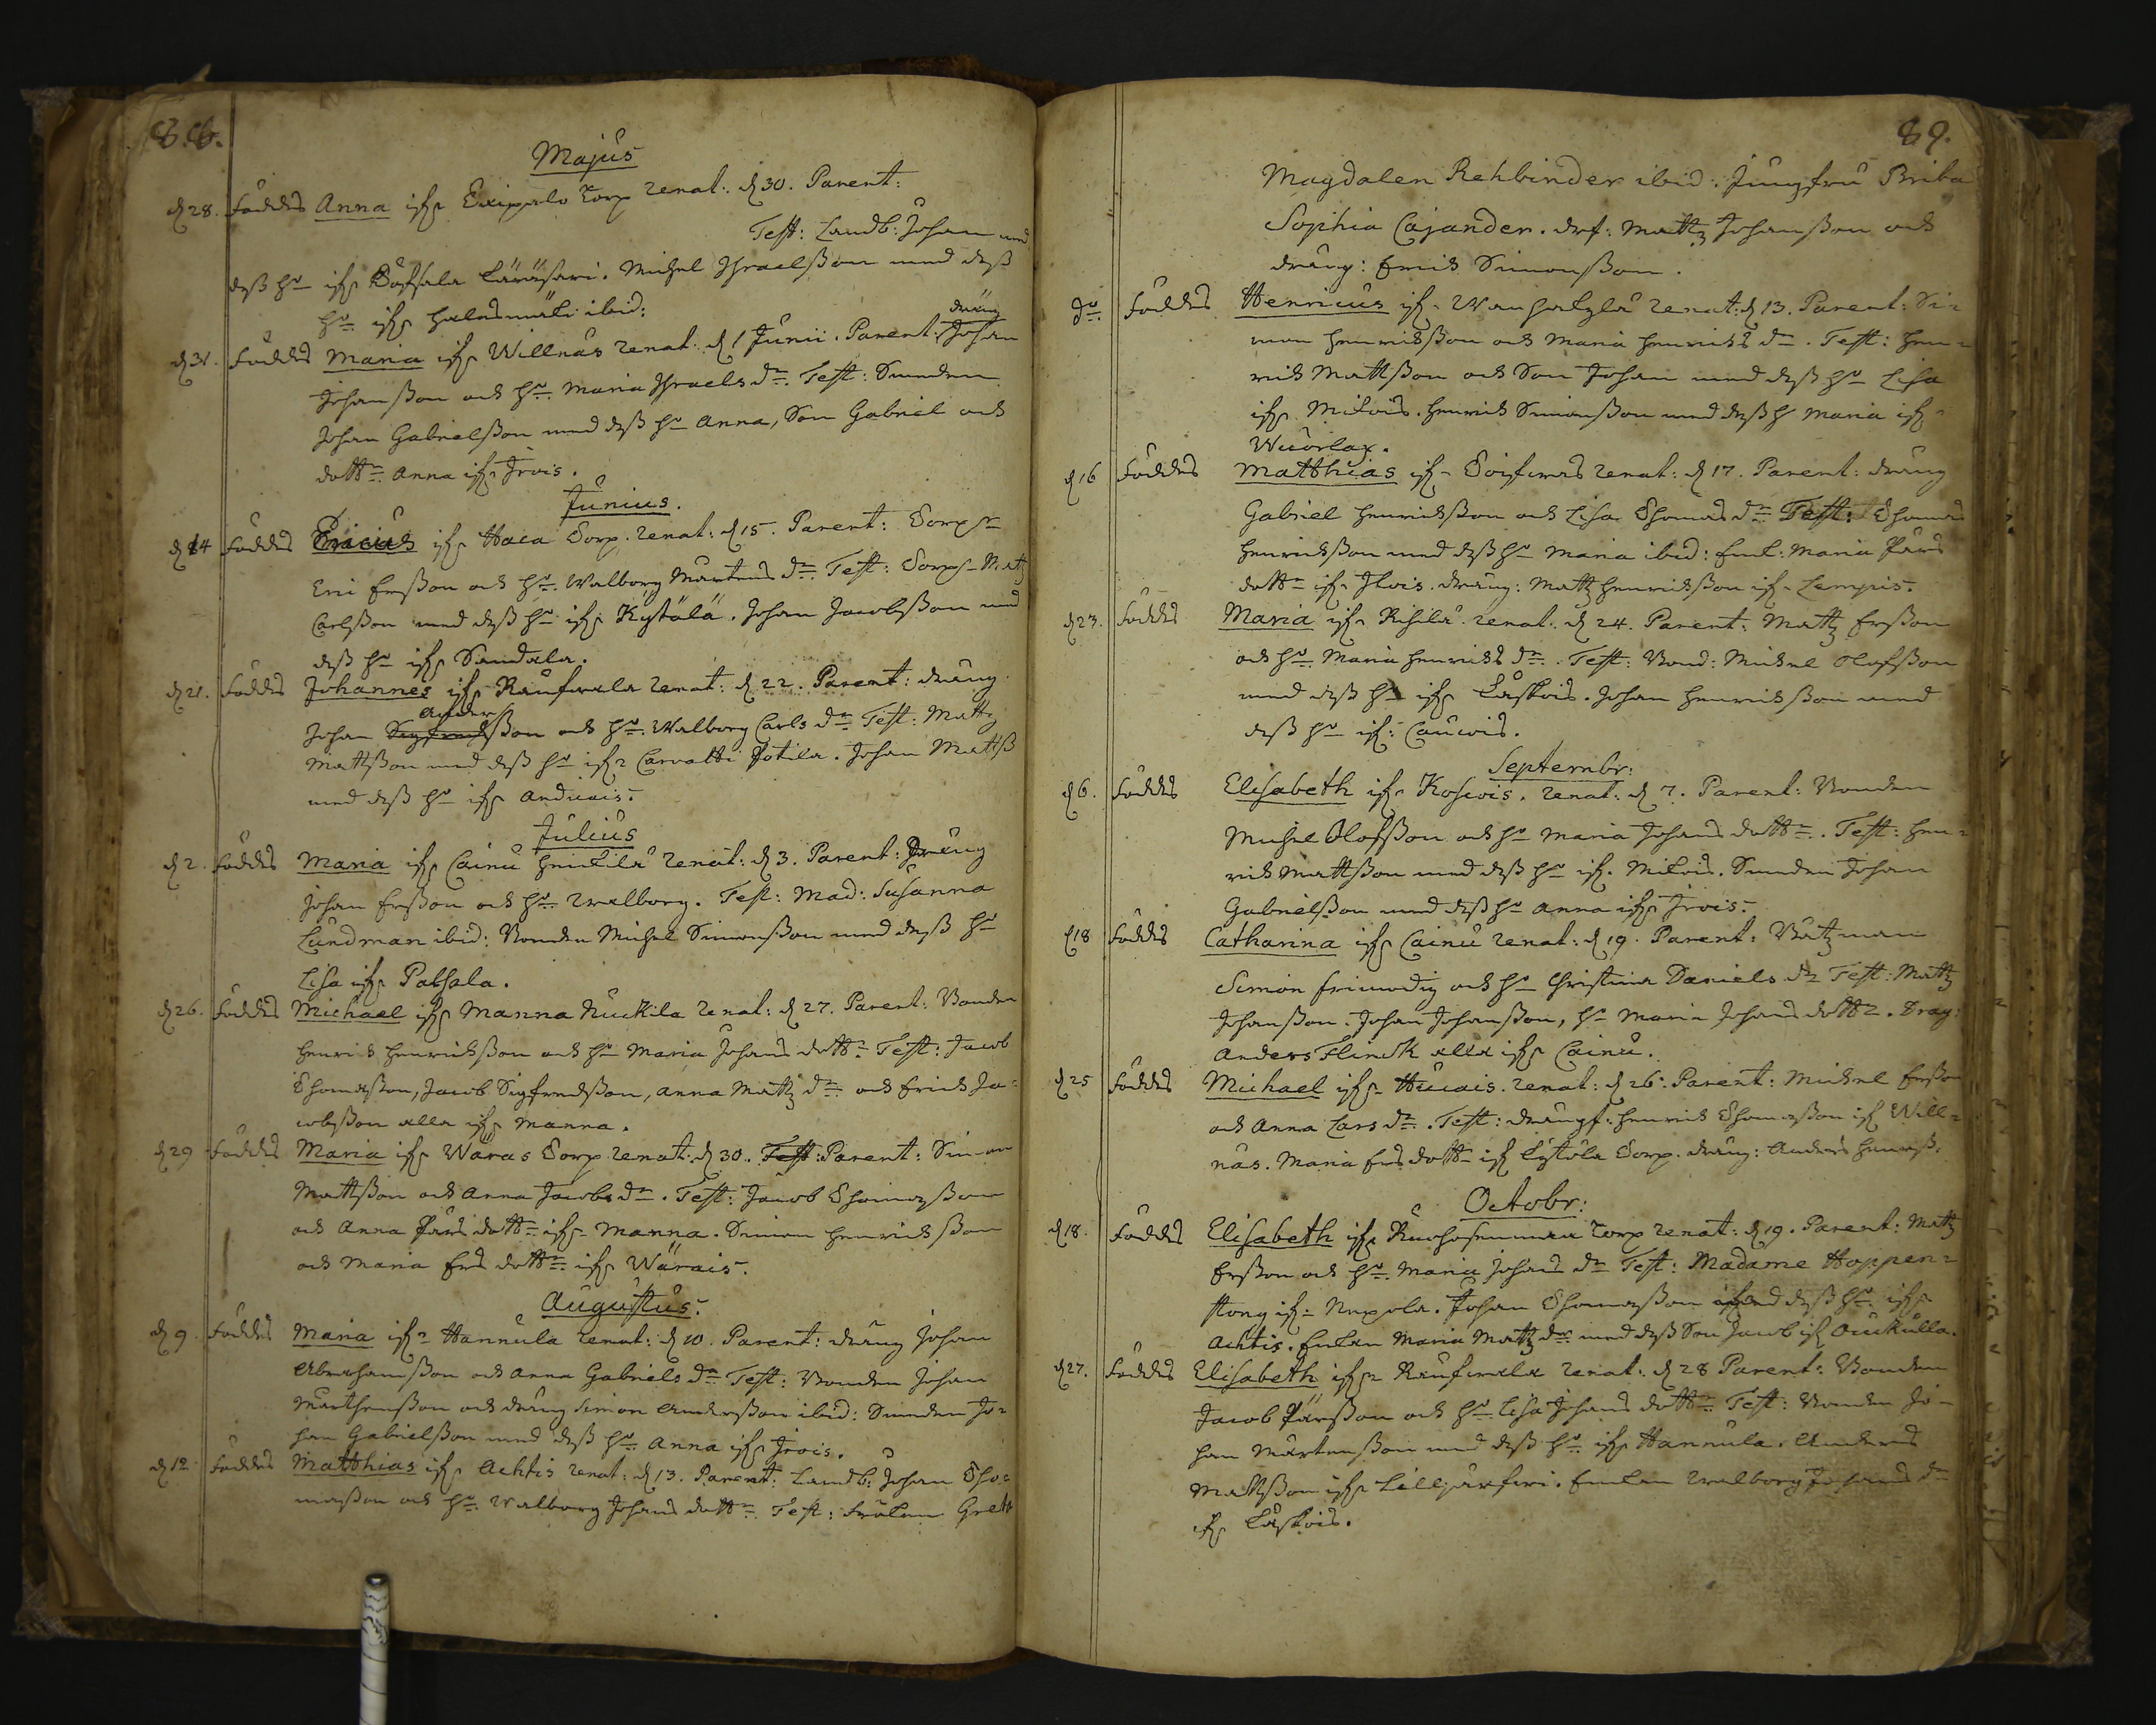 86.
Majus
d 28. Föddes Anna ifr Torp renat: d 30. Parent:
Test: Landb: Johan med
dess hu ifr Michel Israelsson med dess
hu ifr ibid:
dräng
d 31. Föddes Maria ifr Willnäs renat: d 1 Junii. Parent: Johan
Johansson och hu. Maria Israels dr. Test: Smeden
Johan Gabrielsson med dess hu Anna, Son Gabriel och
dottr. Anna ifr Jrois.
Junius.
d 14 Föddes Ericus ifr Haca Torp. renat: d 15. Parent: Torpr
Eric Ersson och hu. Walborg Mårtens dr. Test: Torpr Matz
Carlsson med dess hu ifr Kytölä. Johan Jacobsson med
dess hu ifr Sandala.
d 21. Föddes Johannes ifr Raufwala renat: d 22. Parent: dräng
Anders
Johan Sigfredsson och hu. Walborg Carls dr Test: Matz
Mattsson med dess hu ifr Carvatti Potila. Johan Matss
med dess hu ifr
Julius
d 2. Föddes Maria ifr Cainu Heickilä renat: d 3. Parent: Dräng
Johan Ersson och hu. Walborg. Test: Mad: Susanna
Lundman ibid: Bonden Michel Simonsson med dess hu
Lisa ifr Patsala.
d 26. Föddes Michael ifr Manna Kuckila renat: d 27. Parent: Bonden
Henrich Henrichsson och hu Maria Johans dottr. Test: Jacob
Thomasson, Jacob Sigfredsson, Anna Matz dr. och Erich Ja=
cobsson alla ifr Manna.
d 29 Föddes Maria ifr Waras Torp renat: d 30. Test: Parent: Simon
Mattsson och Anna Jacobs dr. Test: Jacob Thomasson
och Anna Pärs dottr ifr Manna. Simon Henrichsson
och Maria Ers dottr. ifr Wärais.
Augustus.
d 9. Föddes Maria ifr Hannula renat: d 10. Parent: dräng Johan
Abrahamsson och Anna Gabriels dr Test: Bonden Johan
Mårthensson och dräng Simon Andersson ibid: Smeden Jo=
han Gabrielsson med dess hu. Anna ifr Jrois.
d 12. Föddes Matthias ifr Achtis renat: d 13. Parent: Landb: Johan Tho=
masson och hu. Walborg Johans dottr. Test: Fröken Gret
89.
Magdalen Rehbinder ibid: Jungfru Brita
Sophia Cajander. drf: Matz Johansson och
dräng: Erich Simonsson.
do Föddes Henricus ifr Wanhakylä renat: d 13. Parent: Si=
mon Henrichsson och Maria Henrichs dr. Test: Hen=
rich Mattsson och Son Johan med dess hu Lisa
ifr Mikois. Henrich Simonsson med dess h Maria ifr
Wuorlax.
d 16 Föddes Matthias ifr renat: d 17. Parent: dräng
Gabriel Henrichsson och Lisa Thomas dr Test: Thomas
Henrichsson med dess hu Maria ibid: Enk: Maria Pärs
dottr ifr Jlois. dräng: Matz Henrichsson ifr Lempis.
d 23. Föddes Maria ifr Rihilä. renat: d 24. Parent: Matz Ersson
och hu Maria Henrichs dr. Test: Bond: Michel Olofsson
med dess hu ifr Laskois. Johan Henrichsson med
dess hu ifr: Cauwis.
Septembr:
d 6. Föddes Elisabeth ifr Koswois. renat: d 7. Parent: Bonden
Michel Olofsson och hu Maria Johans dottr. Test: Hen=
rich Mattsson med dess hu ifr. Mikois. Smeden Johan
Gabrielsson med dess hu Anna ifr Jrois.
d 18 Föddes Catharina ifr Cainu renat: d 19. Parent: Båtzman
Simon Frimodig och hu Christina Daniels dr Test: Matz
Johansson. Johan Johansson, hu Maria Johans dottr. Drag:
Anders Flinck alla ifr Cainu.
d 25 Föddes Michael ifr Hucais. renat: d 26. Parent: Michel Ersson
och Anna Lars dr. Test: drängr: Henrich Thomasson ifr Will=
näs. Maria Ers dottr ifr Kytölä Torp. dräng: Anders Henrss.
Octobr:
d 18. Föddes Elisabeth ifr Torp renat: d 19. Parent: Matz
Ersson och hu. Maria Johans dr Test: Madame Hoppen=
stong ifr Nepola. Johan Thomasson med dess hu. ifr
Achtis. Enkan Maria Matz dr med dess Son Jacob ifr Ouckulla.
d 27. Föddes Elisabeth ifr Raufwala renat: d 28 Parent: Bonden
Jacob Pärsson och hu. Lisa Johans dottr Test: Bonden Jo=
han Mårtensson med dess hu ifr Hannula. Anders
Mattsson ifr Enkan Walborg Johans dr
ifr Laskois.